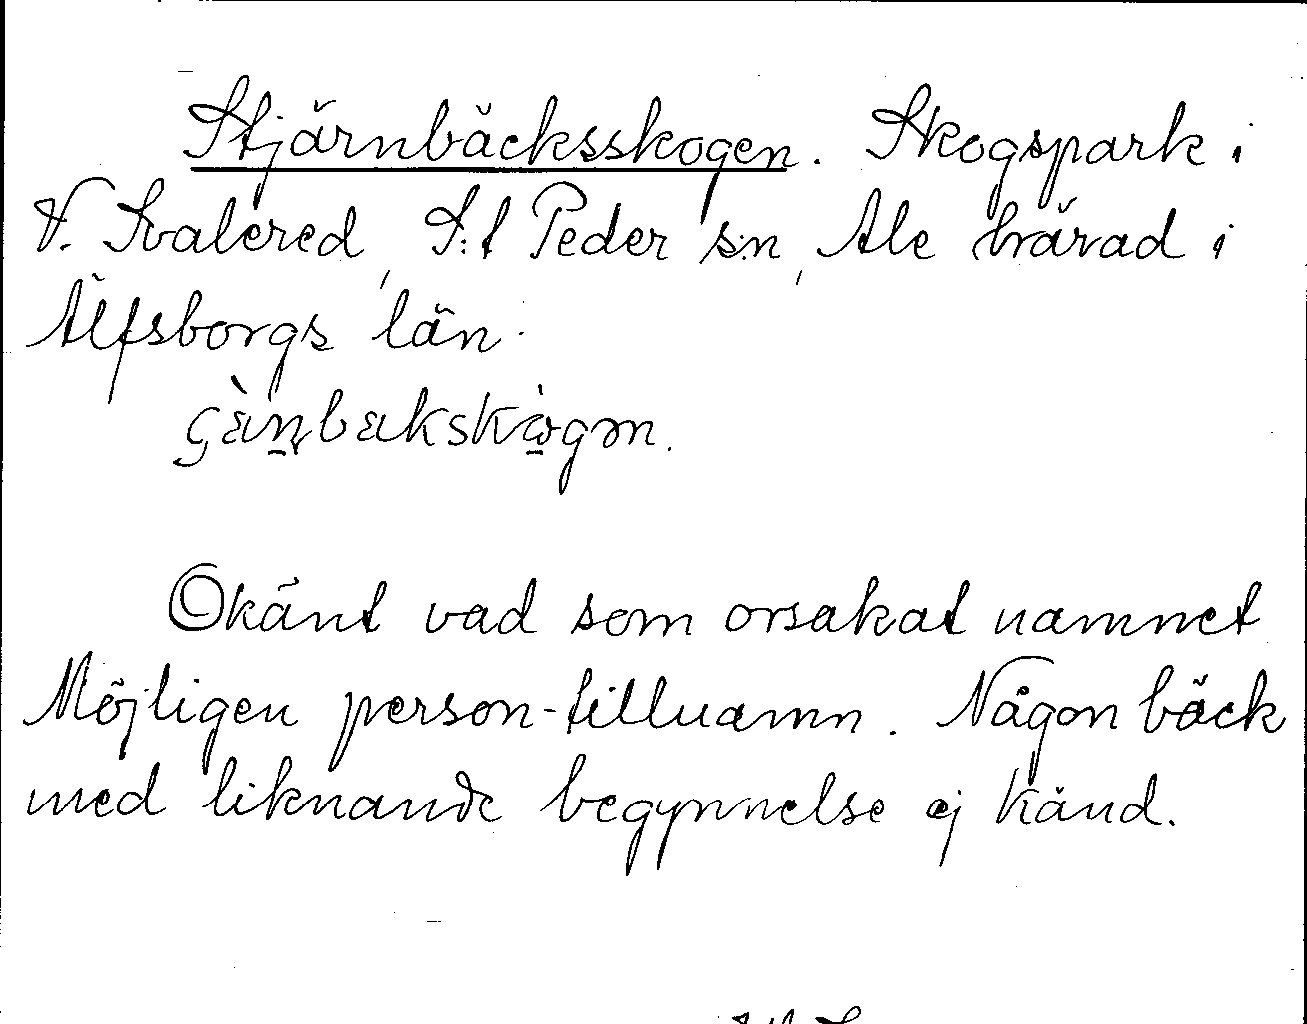 Stjärnbäcksskogen. Skogspark i
V. Svalered, S:t Peder s:n, Ale härad i
Älfsborgs län.
Okänt vad som orsakat namnet
Möjligen person-tillnamn. Någon bäck
med liknande begynnelse ej känd.